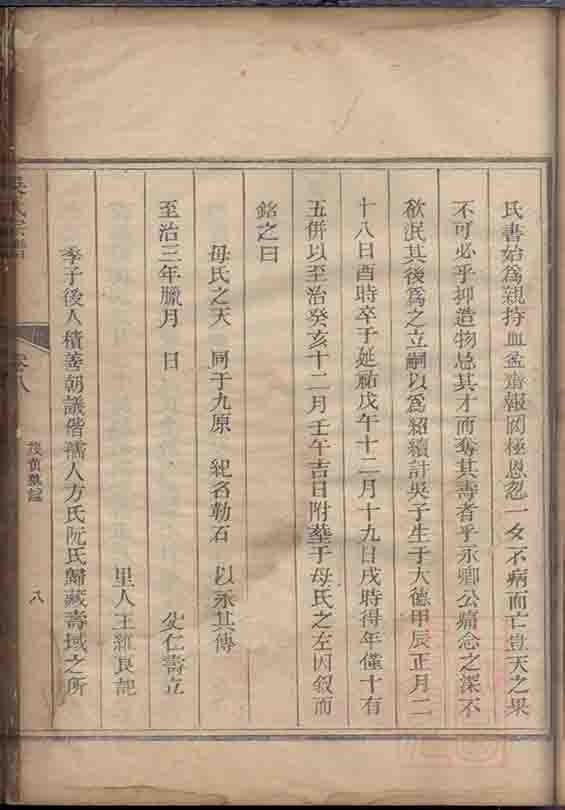 氏書始爲親持血盆齋報罔極恩忍一夕不病而亡豈天之果
不可必乎抑造物忌其才而奪其壽者乎永卿公痛念之深不
欲泯其後爲之立嗣以爲紹續計吳子生于大德甲辰正月二
十八日酉時卒于延祐戊午十二月十九日戌時得年僅十有
五併以至治癸亥十二月壬午吉日附塟于母氏之左因叙而
銘之曰
母氏之天 同于九原 紀名勒石 以永其傳
至治三年臘月 日 父仁壽立
里人王維良記
季子後人積善朝議偕孺人方氏阮氏歸藏壽域之所
卷八
茂黄墓誌
八